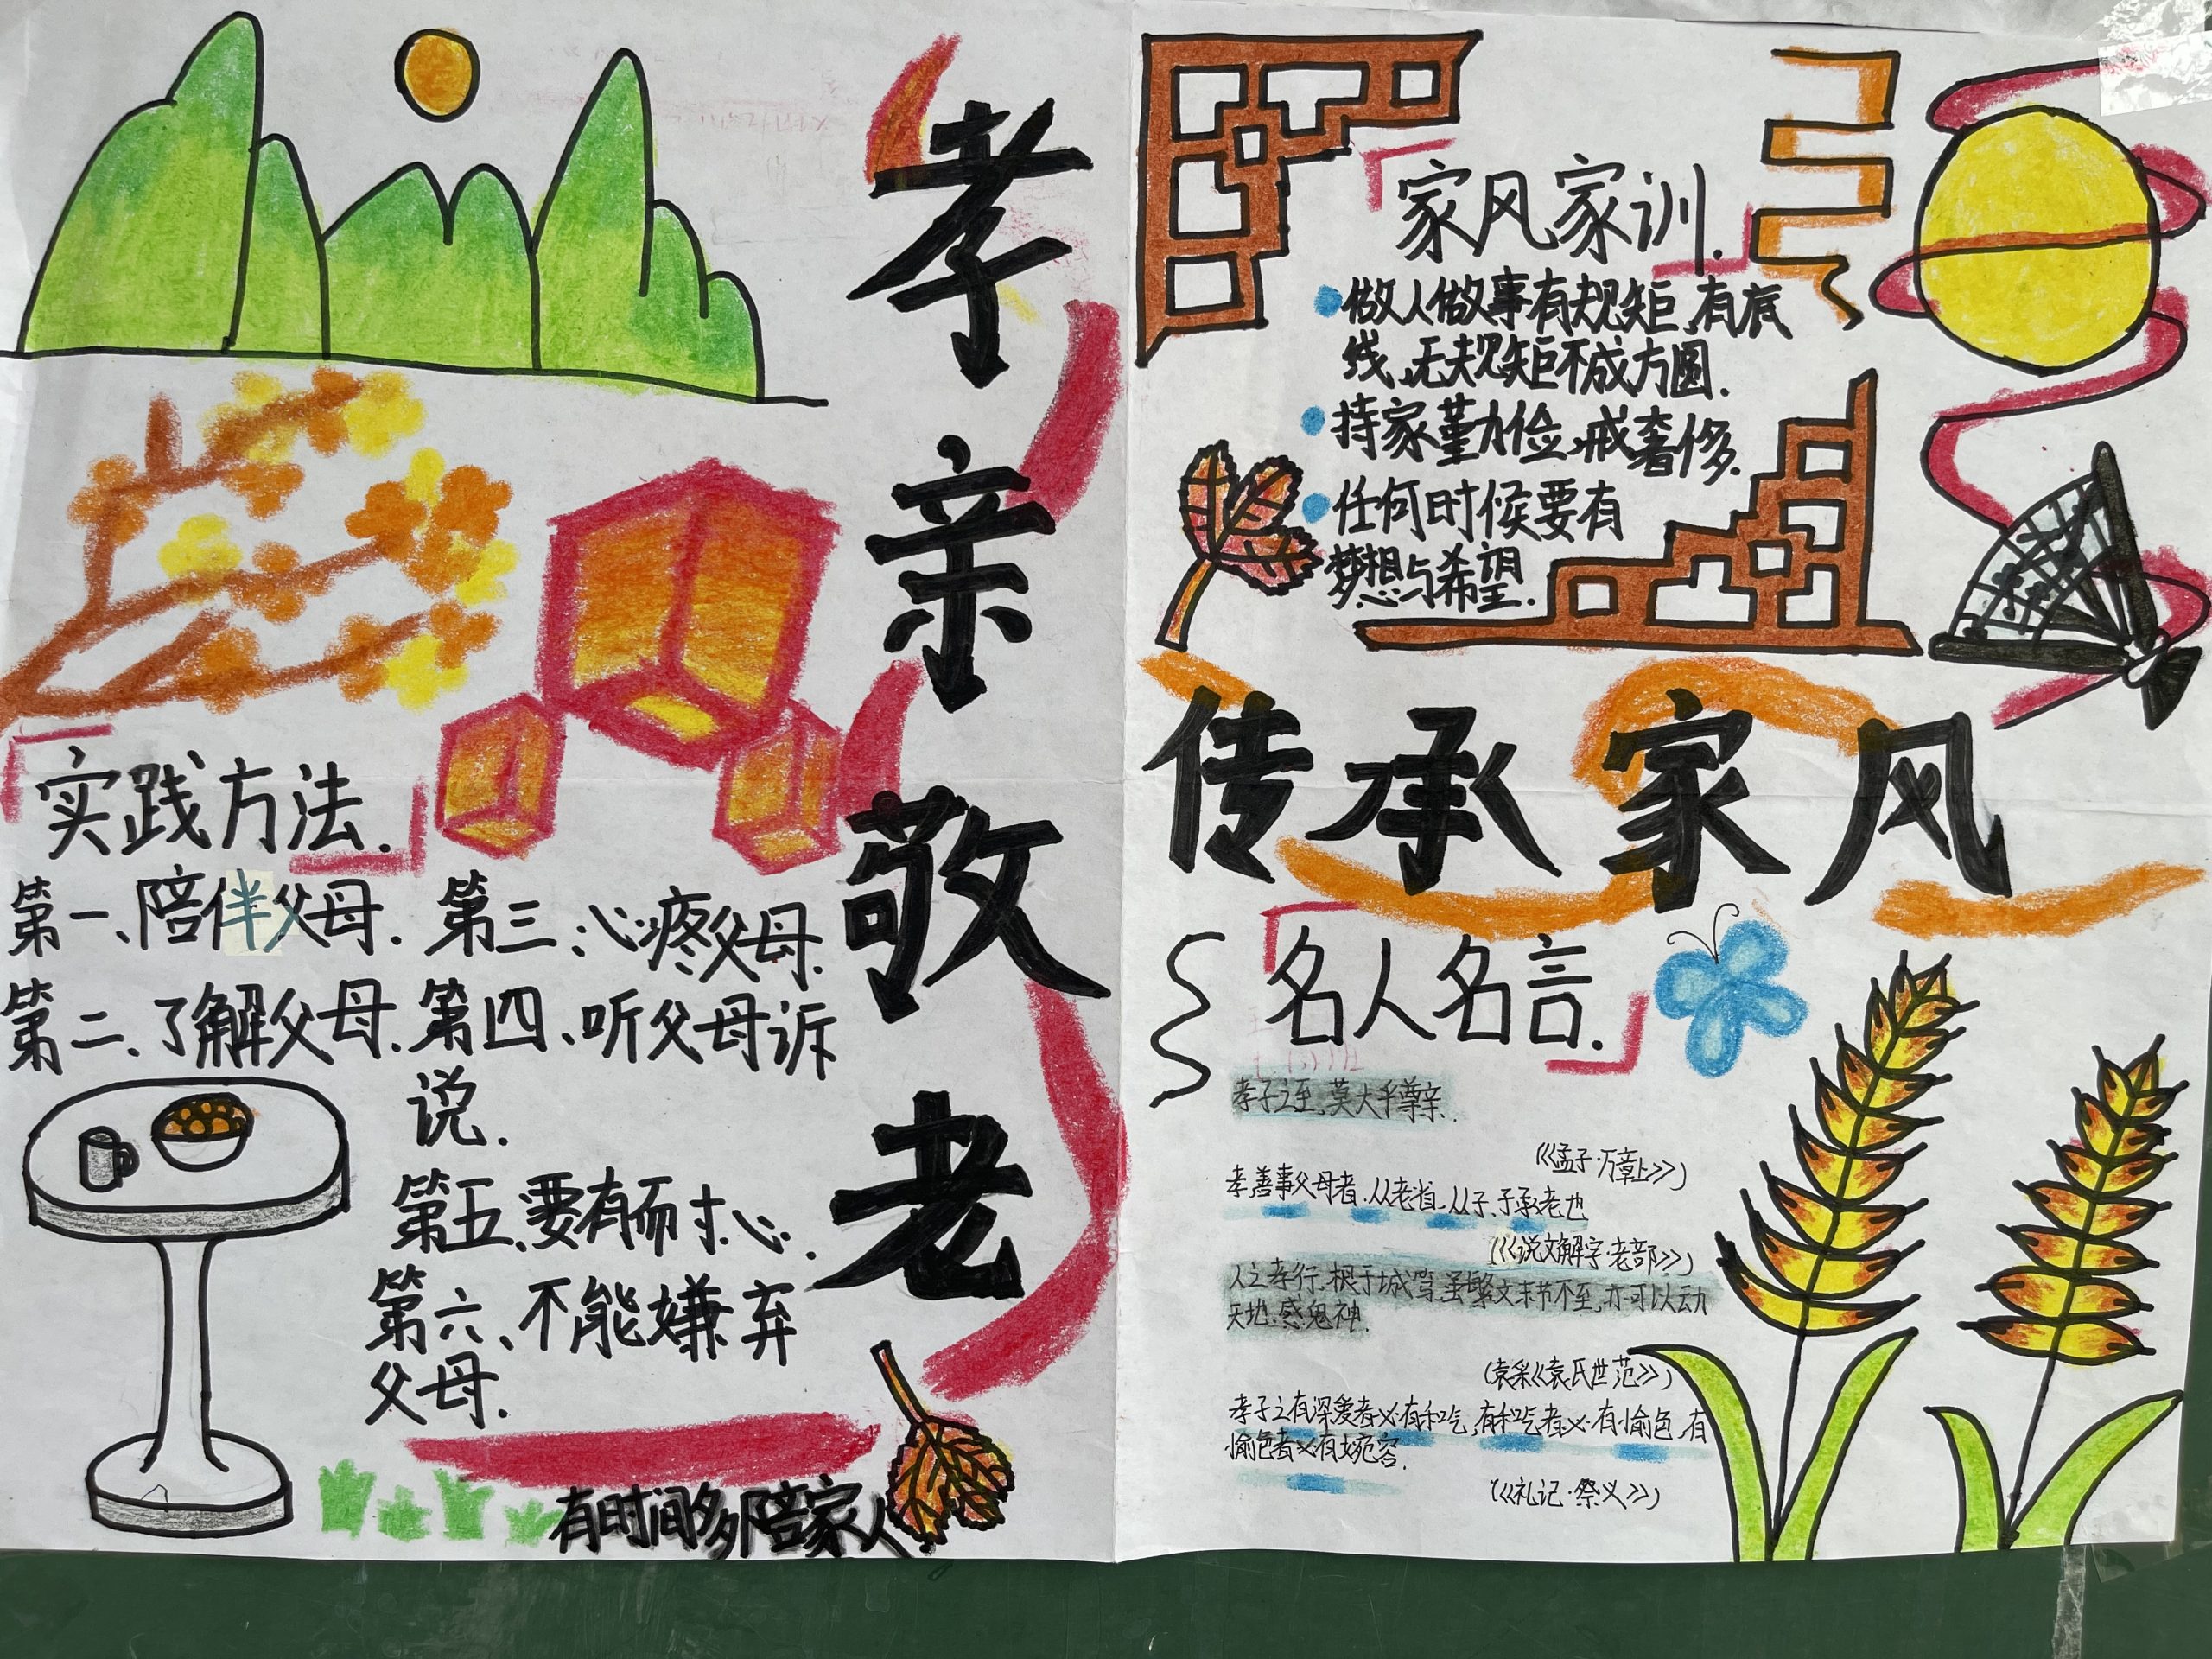 孝亲敬老
实践方法.
第一、陪伴父母.
第二、了解父母.
第三、心疼父母.
第四、听父母诉
说.
第五、要有耐心.
第六、不能嫌弃
父母.
有时间多陪家人
家风家训.
做人做事有规矩,有底
线,无规矩不成方圆.
持家勤俭,戒奢侈.
任何时候要有
梦想与希望.
传承家风
名人名言.
孝子之至,莫大乎尊亲.
(《孟子·万章上》)
孝善事父母者.从老省,从子、子承老也
(《说文解字·老部》)
人之孝行,根于城笃,虽繁文末节不至,亦可以动
天地.感鬼神.
(袁采《袁氏世范》)
孝子之有深爱者必有和吃,有和吃者必有愉色,有
愉色者必有婉容.
(《礼记·祭义》)